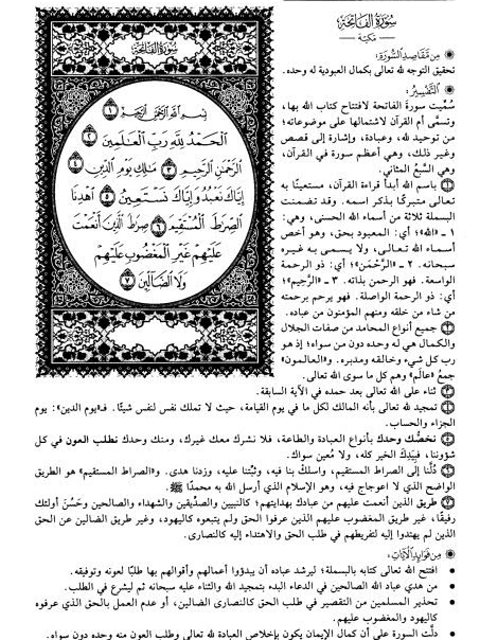 سُورَةُ الفَاتِحَةِ
مَكيّة
سُورَةُ الفَاتِحَةِ
بِسْمِ اللَّهِ الرَّحْمَٰنِ الرَّحِيمِ ١
الْحَمْدُ لِلَّهِ رَبِّ الْعَالَمِينَ ٢
الرَّحْمَٰنِ الرَّحِيمِ ٣ مَالِكِ يَوْمِ الدِّينِ ٤
إِيَّاكَ نَعْبُدُ وَإِيَّاكَ نَسْتَعِينُ ٥ اهْدِنَا
الصِّرَاطَ الْمُسْتَقِيمَ ٦ صِرَاطَ الَّذِينَ أَنْعَمْتَ
عَلَيْهِمْ غَيْرِ الْمَغْضُوبِ عَلَيْهِمْ
وَلَا الضَّالِّينَ ٧
مِن مَقَاصِدِ السُّورَةِ:
تحقيق التوجه لله تعالى بكمال العبودية له وحده.
التَّفْسِيرُ:
سُمِّيت سورة الفاتحة لافتتاح كتاب الله بها،
وتسمَّى أم القرآن لاشتمالها على موضوعاته؛
من توحيد لله، وعبادة، وإشارة إلى قصص
وغير ذلك، وهي أعظم سورة في القرآن،
وهي السَّبْعُ المثاني.
١ باسم الله أبدأ قراءة القرآن، مستعينًا به
تعالى متبركًا بذكر اسمه. وقد تضمنت
البسملة ثلاثة من أسماء الله الحسنى، وهي:
١ - «الله»؛ أي: المعبود بحق، وهو أخص
أسماء الله تعالى، ولا يسمى به غيره
سبحانه. ٢ - «الرَّحْمَٰن»؛ أي: ذو الرحمة
الواسعة. فهو الرحمن بذاته. ٣ - «الرَّحِيم»؛
أي: ذو الرحمة الواصلة. فهو يرحم برحمته
من شاء من خلقه ومنهم المؤمنون من عباده.
٢ جميع أنواع المحامد من صفات الجلال
والكمال هي له وحده دون من سواه؛ إذ هو
رب كل شيء وخالقه ومدبره. و«العالمون»
جمعُ «عالَم» وهم كل ما سوى الله تعالى.
٣ ثناء على الله تعالى بعد حمده في الآية السابقة.
٤ تمجيد لله تعالى بأنه المالك لكل ما في يوم القيامة، حيث لا تملك نفس لنفس شيئًا. فـ«يوم الدين»: يوم
الجزاء والحساب.
٥ نخصُّك وحدك بأنواع العبادة والطاعة، فلا نشرك معك غيرك، ومنك وحدك نطلب العون في كل
شؤوننا، فبِيَدِكَ الخير كله، ولا مُعين سواك.
٦ دُلَّنا إلى الصراط المستقيم، واسلك بنا فيه، وثبِّتنا عليه، وزدنا هدى. و«الصراط المستقيم» هو الطريق
الواضح الذي لا اعوجاج فيه، وهو الإسلام الذي أرسل الله به محمدًا ﷺ.
٧ طريق الذين أنعمت عليهم من عبادك بهدايتهم؛ كالنبيين والصدِّيقين والشهداء والصالحين وحَسُنَ أولئك
رفيقًا، غير طريق المغضوب عليهم الذين عرفوا الحق ولم يتبعوه كاليهود، وغير طريق الضالين عن الحق
الذين لم يهتدوا إليه لتفريطهم في طلب الحق والاهتداء إليه كالنصارى.
مِن فَوَائِدِ الآيَاتِ:
• افتتح الله تعالى كتابه بالبسملة؛ ليرشد عباده أن يبدؤوا أعمالهم وأقوالهم بها طلبًا لعونه وتوفيقه.
• من هدي عباد الله الصالحين في الدعاء البدء بتمجيد الله والثناء عليه سبحانه ثم ليشرع في الطلب.
• تحذير المسلمين من التقصير في طلب الحق كالنصارى الضالين، أو عدم العمل بالحق الذي عرفوه
كاليهود والمغضوب عليهم.
• دلَّت السورة على أن كمال الإيمان يكون بإخلاص العبادة لله تعالى وطلب العون منه وحده دون سواه.